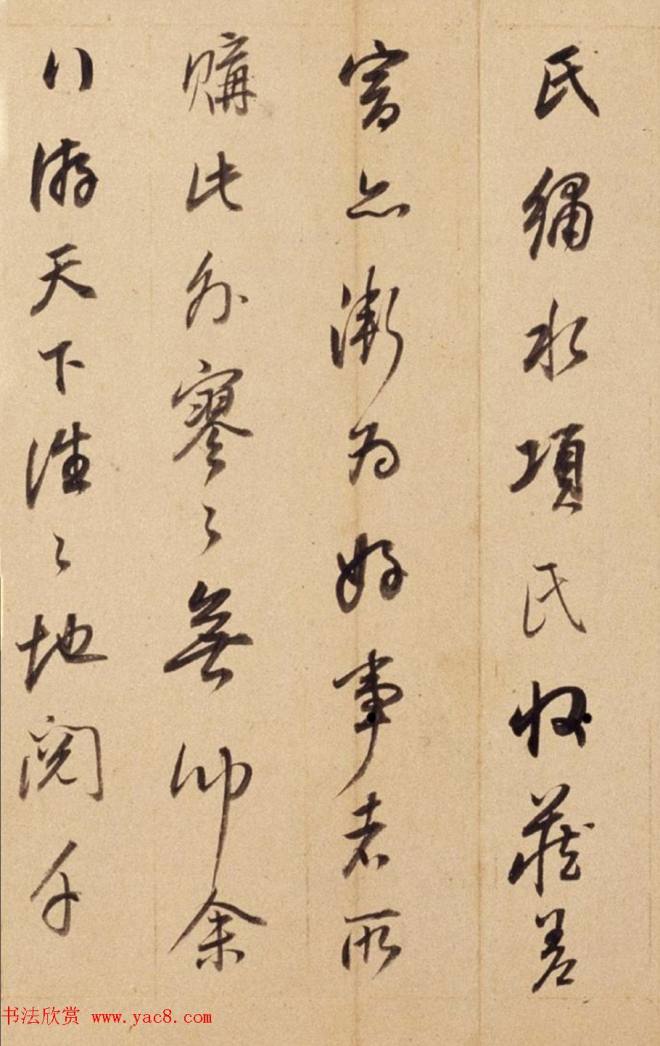 氏繡水項氏收藏差
富亦漸為好事者所
購此外寥〻無聞余
行游天下往〻地閱千
书法欣赏 www.yac8.com